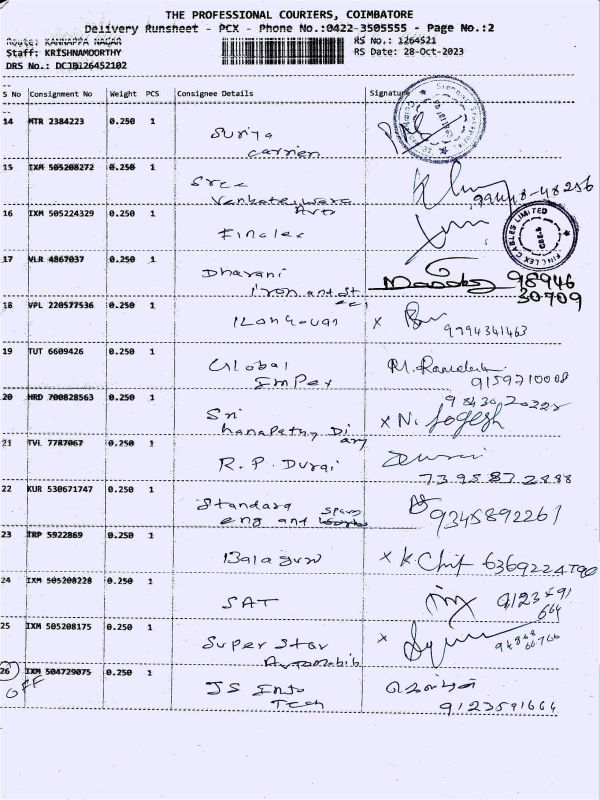 THE PROFESSIONAL COURIERS, COIMBATORE
Delivery Runsheet - PCX - Phone No.:0422-3505555 - Page No.:2
Route: KANNAPPA NAGAR RS No.: 1264521
Staff: KRISHNAMOORTHY RS Date: 28-Oct-2023
DRS No.: DCJB126452102
S No Consignment No Weight PCS Consignee Details Signature
14 MTR 2384223 0.250 1 Suriya
Carrier
15 IXM 505208272 0.250 1 Sree
Venkateswara
Arts
99448-48256
16 IXM 505224329 0.250 1 Finolex
FINOLEX CABLES LIMITED
17 VLR 4867037 0.250 1 Dharani
Iron and St
eel
98946
30709
18 VPL 220577536 0.250 1 Ilangovan X
9794341463
19 TUT 6609426 0.250 1 Global
Impex
9159710008
20 HRD 700828563 0.250 1 Sri
Ganapathy Di
ary
X N. Jogesh
21 TVL 7787067 0.250 1 R.P. Durai Durai
22 KUR 530671747 0.250 1 Standard
eng and
9345892261
23 TRP 5922869 0.250 1 Balaguru X
6369224790
24 IXM 505208228 0.250 1 SAT
9123591
664
25 IXM 505208175 0.250 1 Super Star
Automobib
X
26 IXM 504729075 0.250 1 JS Info
Tech
OFF
9123591664